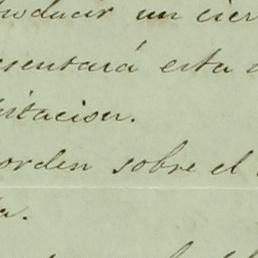 oducir un cier
esentará esta
itacion.
orden sobre el
ta.